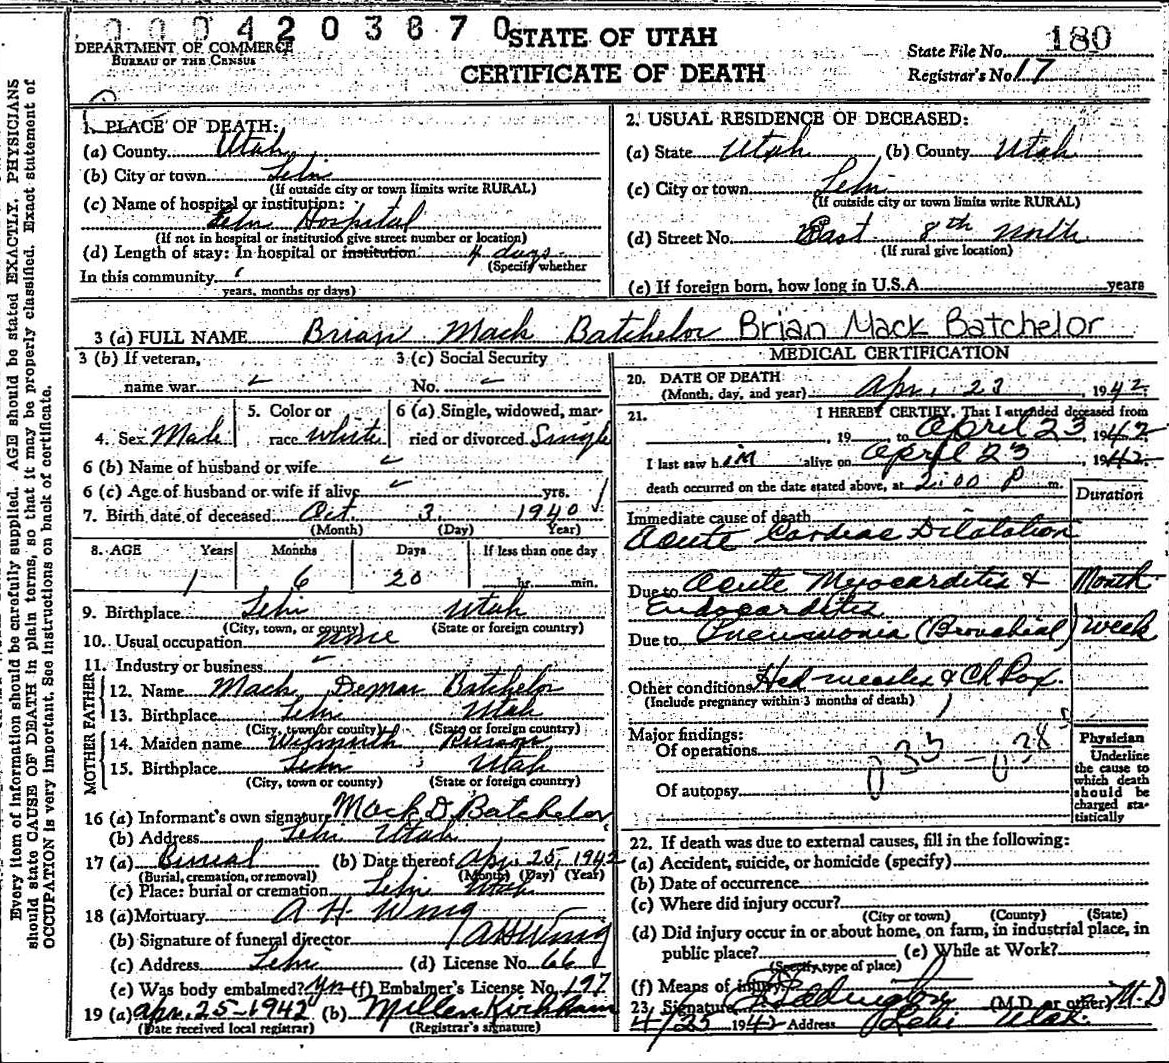 0 0 0 4 2 0 3 8 7 0
STATE OF UTAH
CERTIFICATE OF DEATH
DEPARTMENT OF COMMERCE
BUREAU OF THE CENSUS
State File No. 180
Registrar's No. 17
Every item of information should be carefully supplied. AGE should be stated EXACTLY. PHYSICIANS
should state CAUSE OF DEATH in plain terms, so that it may be properly classified. Exact statement of
OCCUPATION is very important. See instructions on back of certificate.
1. PLACE OF DEATH:
(a) County Utah
(b) City or town Lehi
(If outside city or town limits write RURAL)
(c) Name of hospital or institution:
Lehi Hospital
(If not in hospital or institution give street number or location)
(d) Length of stay: In hospital or institution 4 days
(Specify whether
In this community
years, months or days)
2. USUAL RESIDENCE OF DECEASED:
(a) State Utah (b) County Utah
(c) City or town Lehi
(If outside city or town limits write RURAL)
(d) Street No. East 8th North
(If rural give location)
(e) If foreign born, how long in U.S.A. years
3 (a) FULL NAME Brian Mack Batchelor Brian Mack Batchelor
3 (b) If veteran,
name war
3 (c) Social Security
No.
4. Sex Male
5. Color or
race white
6 (a) Single, widowed, mar-
ried or divorced Single
6 (b) Name of husband or wife
6 (c) Age of husband or wife if alive yrs.
7. Birth date of deceased Oct. 3, 1940
(Month) (Day) Year)
8. AGE Years Months Days If less than one day
1 6 20 hr. min.
9. Birthplace Lehi Utah
(City, town, or county) (State or foreign country)
10. Usual occupation none
11. Industry or business
FATHER
12. Name Mack Demar Batchelor
13. Birthplace Lehi Utah
(City, town or county) (State or foreign country)
MOTHER
14. Maiden name
15. Birthplace Lehi Utah
(City, town or county) (State or foreign country)
16 (a) Informant's own signature Mack D. Batchelor
(b) Address Lehi Utah
17 (a) Burial (b) Date thereof Apr. 25, 1942
(Burial, cremation, or removal) (Month) (Day) (Year)
(c) Place: burial or cremation Lehi Utah
18 (a) Mortuary A H Wing
(b) Signature of funeral director A H Wing
(c) Address Lehi (d) License No. 66
(e) Was body embalmed? Yes (f) Embalmer's License No. 197
19 (a) Apr. 25-1942 (b) Millen Kirkham
(Date received local registrar) (Registrar's signature)
MEDICAL CERTIFICATION
20. DATE OF DEATH
(Month, day, and year) Apr. 23 1942
21. I HEREBY CERTIFY, That I attended deceased from
, 19 to April 23, 1942
I last saw h im alive on April 23, 1942
death occurred on the date stated above, at 2:00 P m.
Duration
Immediate cause of death
Acute Cardiac Dilatation
Due to Acute Myocarditis & Month
Endocarditis
Due to Pneumonia (Bronchial) week
Other conditions Had measles & Ch Pox.
(Include pregnancy within 3 months of death)
Major findings:
Of operations
033 - 038
Of autopsy
Physician
Underline
the cause to
which death
should be
charged sta-
tistically
22. If death was due to external causes, fill in the following:
(a) Accident, suicide, or homicide (specify)
(b) Date of occurrence
(c) Where did injury occur?
(City or town) (County) (State)
(d) Did injury occur in or about home, on farm, in industrial place, in
public place? (e) While at Work?
(Specify type of place)
(f) Means of injury
23. Signature Eddington (M.D. or other) M.D
4/25 1942 Address Lehi Utah.